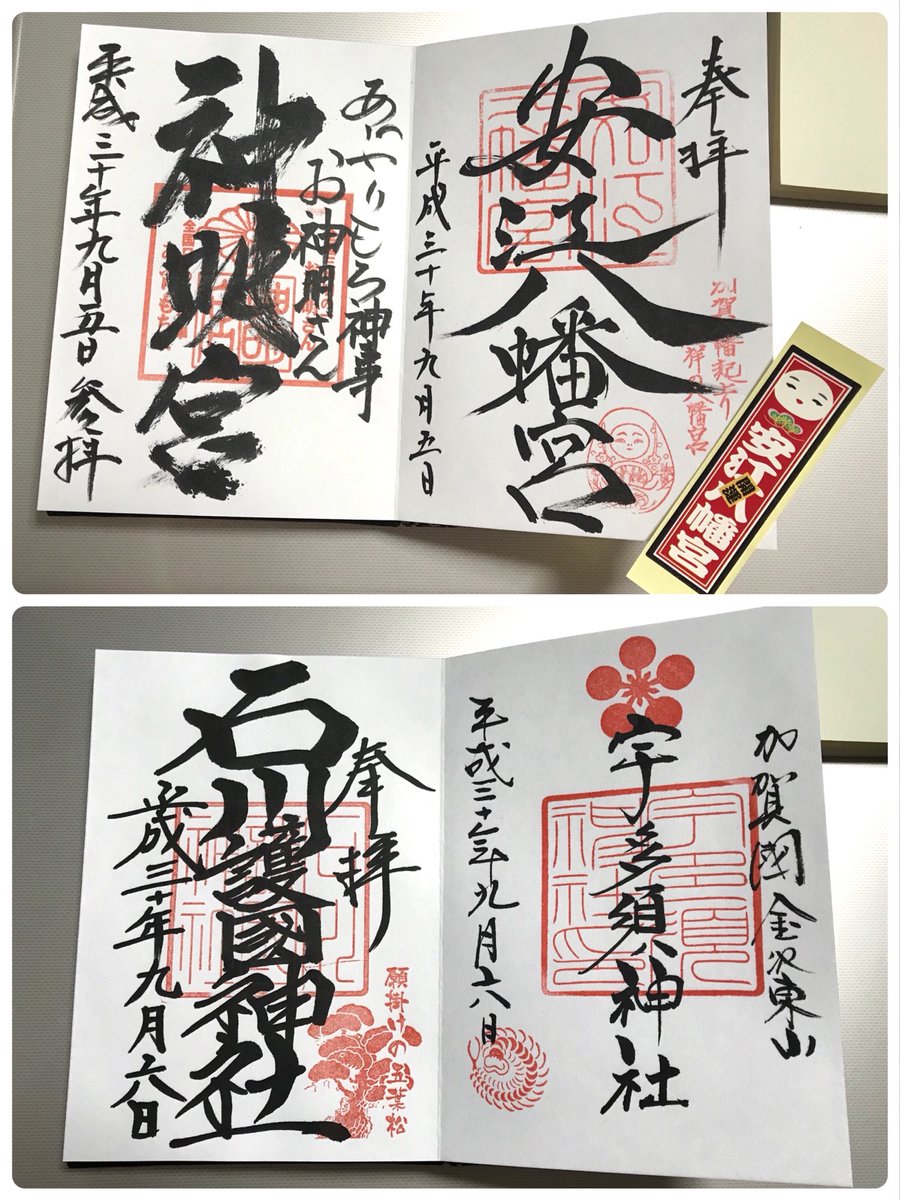 奉拝
安江八幡宮
平成三十年九月五日
加賀八幡起上り
祥の八幡宮
安江八幡宮
開運
あぶりもち神事
お神明さん
神明宮
平成三十年九月五日 参拝
加賀國金沢東山
宇多須神社
平成三十年九月六日
奉拝
石川護國神社
平成三十年九月六日
願掛けの五葉松